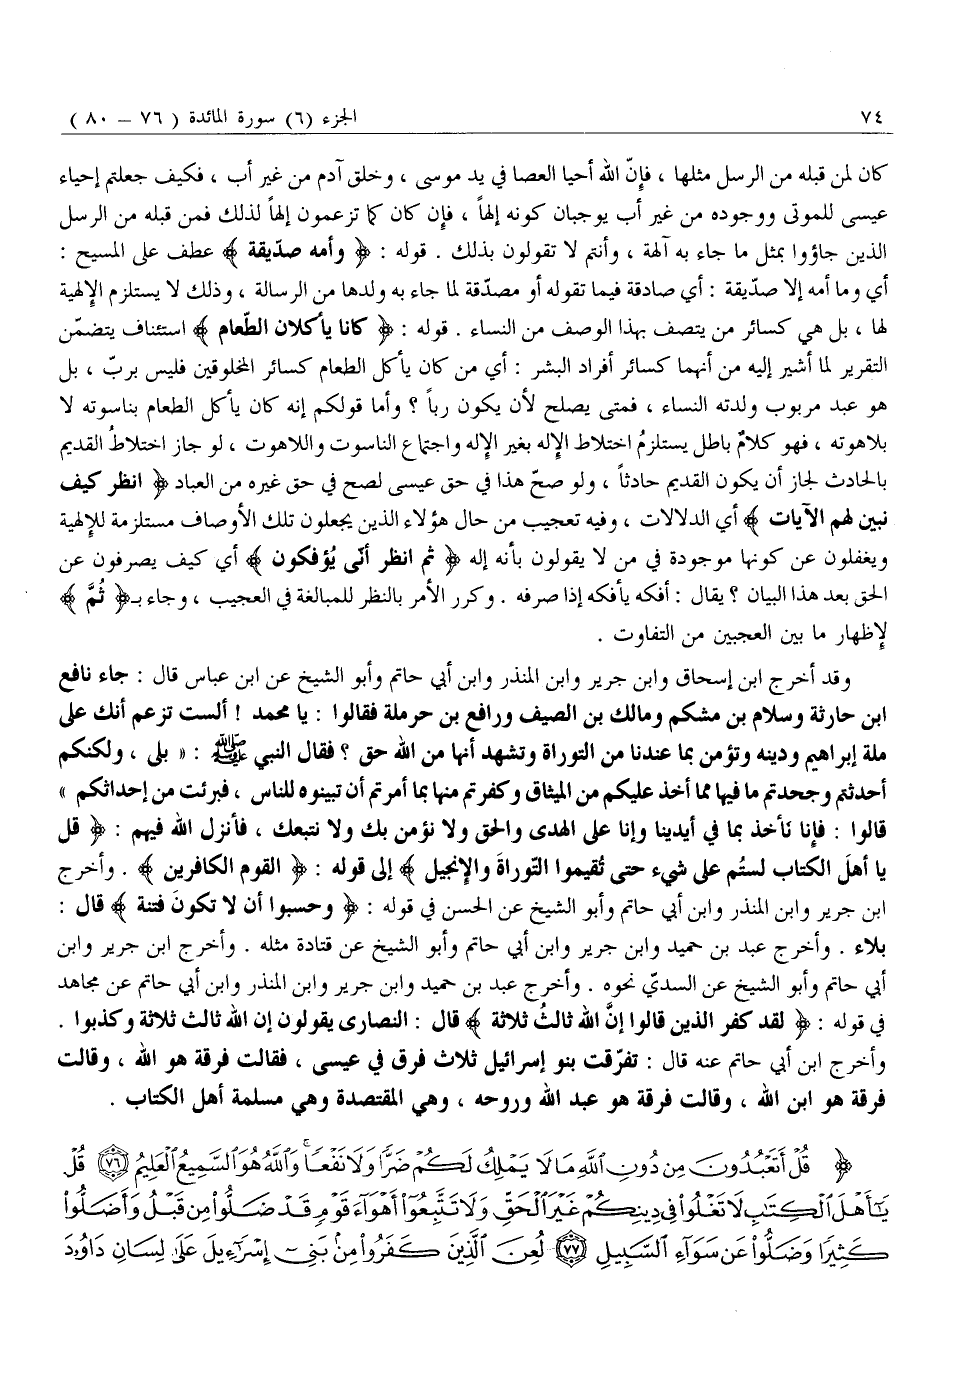 ٧٤ الجزء (٦) سورة المائدة ( ٧٦ – ٨٠ )
كان لمن قبله من الرسل مثلها ، فإنّ الله أحيا العصا في يد موسى ، وخلق آدم من غير أب ، فكيف جعلتم إحياء
عيسى للموتى ووجوده من غير أب يوجبان كونه إلهاً ، فإن كان كما تزعمون إلهاً لذلك فمن قبله من الرسل
الذين جاؤوا بمثل ما جاء به آلهة ، وأنتم لا تقولون بذلك . قوله : ﴿ وأمه صدّيقة ﴾ عطف على المسيح :
أي وما أمه إلا صدّيقة : أي صادقة فيما تقوله أو مصدّقة لما جاء به ولدها من الرسالة ، وذلك لا يستلزم الإلهية
لها ، بل هي كسائر من يتصف بهذا الوصف من النساء . قوله : ﴿ كانا يأكلان الطّعام ﴾ استئناف يتضمّن
التقرير لما أشير إليه من أنهما كسائر أفراد البشر : أي من كان يأكل الطعام كسائر المخلوقين فليس بربّ ، بل
هو عبد مربوب ولدته النساء ، فمتى يصلح لأن يكون رباً ؟ وأما قولكم إنه كان يأكل الطعام بناسوته لا
بلاهوته ، فهو كلامٌ باطل يستلزمُ اختلاط الإله بغير الإله واجتماع الناسوت واللاهوت ، لو جاز اختلاطُ القديم
بالحادث لجاز أن يكون القديم حادثاً ، ولو صحّ هذا في حق عيسى لصح في حق غيره من العباد ﴿ انظر كيف
نبين لهم الآيات ﴾ أي الدلالات ، وفيه تعجيب من حال هؤلاء الذين يجعلون تلك الأوصاف مستلزمة للإلهية
ويغفلون عن كونها موجودة في من لا يقولون بأنه إله ﴿ ثم انظر أنّى يُؤفكون ﴾ أي كيف يصرفون عن
الحق بعد هذا البيان ؟ يقال : أفكه يأفكه إذا صرفه . وكرر الأمر بالنظر للمبالغة في العجيب ، وجاء بـ﴿ ثُمَّ ﴾
لإظهار ما بين العجبين من التفاوت .
وقد أخرج ابن إسحاق وابن جرير وابن المنذر وابن أبي حاتم وأبو الشيخ عن ابن عباس قال : جاء نافع
ابن حارثة وسلام بن مشكم ومالك بن الصيف ورافع بن حرملة فقالوا : يا محمد ! ألست تزعم أنك على
ملة إبراهيم ودينه وتؤمن بما عندنا من التوراة وتشهد أنها من الله حق ؟ فقال النبي ﷺ : « بلى ، ولكنكم
أحدثتم وجحدتم ما فيها مما أخذ عليكم من الميثاق وكفرتم منها بما أمرتم أن تبينوه للناس ، فبرئت من إحداثكم »
قالوا : فإنا نأخذ بما في أيدينا وإنا على الهدى والحق ولا نؤمن بك ولا نتبعك ، فأنزل الله فيهم : ﴿ قل
يا أهلَ الكتاب لستُم على شيء حتى تُقيموا التّوراةَ والإنجيل ﴾ إلى قوله : ﴿ القوم الكافرين ﴾ . وأخرج
ابن جرير وابن المنذر وابن أبي حاتم وأبو الشيخ عن الحسن في قوله : ﴿ وحسبوا أن لا تكونَ فتنة ﴾ قال :
بلاء . وأخرج عبد بن حميد وابن جرير وابن أبي حاتم وأبو الشيخ عن قتادة مثله . وأخرج ابن جرير وابن
أبي حاتم وأبو الشيخ عن السديّ نحوه . وأخرج عبد بن حميد وابن جرير وابن المنذر وابن أبي حاتم عن مجاهد
في قوله : ﴿ لقد كفر الذين قالوا إنَّ الله ثالثُ ثلاثة ﴾ قال : النصارى يقولون إن الله ثالث ثلاثة وكذبوا .
وأخرج ابن أبي حاتم عنه قال : تفرّقت بنو إسرائيل ثلاث فرق في عيسى ، فقالت فرقة هو الله ، وقالت
فرقة هو ابن الله ، وقالت فرقة هو عبد الله وروحه ، وهي المقتصدة وهي مسلمة أهل الكتاب .
﴿ قُلْ أَتَعْبُدُونَ مِن دُونِ ٱللَّهِ مَا لَا يَمْلِكُ لَكُمْ ضَرًّا وَلَا نَفْعًا ۚ وَٱللَّهُ هُوَ ٱلسَّمِيعُ ٱلْعَلِيمُ ٧٦ قُلْ
يَٰٓأَهْلَ ٱلْكِتَٰبِ لَا تَغْلُوا۟ فِى دِينِكُمْ غَيْرَ ٱلْحَقِّ وَلَا تَتَّبِعُوٓا۟ أَهْوَآءَ قَوْمٍ قَدْ ضَلُّوا۟ مِن قَبْلُ وَأَضَلُّوا۟
كَثِيرًا وَضَلُّوا۟ عَن سَوَآءِ ٱلسَّبِيلِ ٧٧ لُعِنَ ٱلَّذِينَ كَفَرُوا۟ مِنۢ بَنِىٓ إِسْرَٰٓءِيلَ عَلَىٰ لِسَانِ دَاوُۥدَ